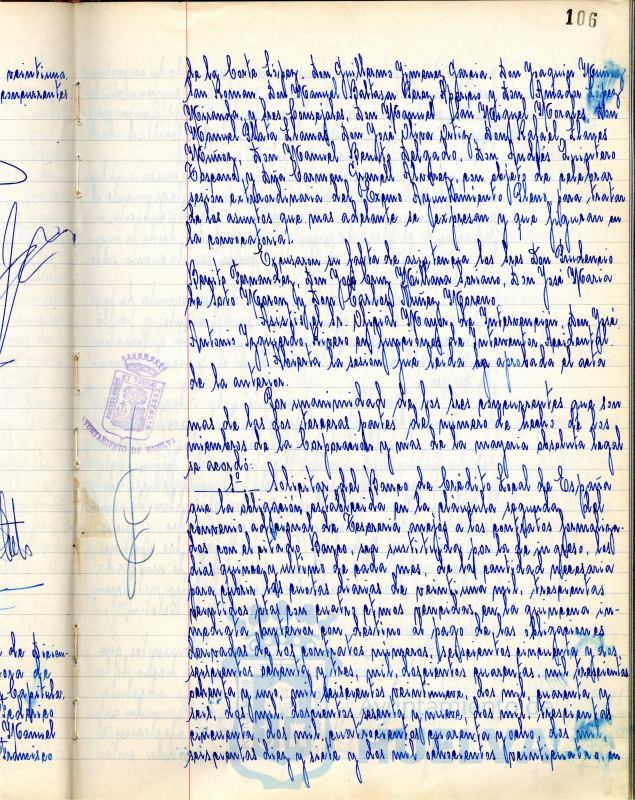 106
veintiuna
concurrentes
de la Corte López, Don Guillermo Jimenez Garcia, Don Joaquin
San Roman, Don Manuel Baltasar Perez Aparicio, Don Amador López
Miranda, y Sres Concejales, Don Manuel San Miguel Morales, Don
Manuel Plata Llamas, Don José Oliva Ortiz, Don Rafael Llanes
Muñoz, Don Manuel Benito Delgado, Don Andres Quintero
y Dña Carmen con objeto de celebrar
sesión extraordinaria del Excmo Ayuntamiento Pleno, para tratar
de los asuntos que mas adelante se expresan y que figuran en
la convocatoria.
Excusaron su falta de asistencia los Sres Don Prudencio
Benito Fernandez, Don José Cruz Millana Soriano, Don José Maria
de Soto Moron y Don Carlos Nuñez Moreno.
Asiste el Sr. Oficial Mayor, de Intervencion, Don José
Antonio Izquierdo en funciones de Interventor accidental.
Abierta la sesión fue leida y aprobada el acta
de la anterior.
Por unanimidad de los Sres concurrentes que son
mas de las dos terceras partes del número de hecho de los
miembros de la Corporación y mas de la mayoria absoluta legal
se acordó:
1º Solicitar del Banco de Crédito Local de España
que la obligación establecida en la cláusula segunda del
convenio adicional de Tesoreria anejo a los contratos formaliza-
dos con el citado Banco, sea sustituida por la de ingreso, los
dias quince y ultimo de cada mes, de la cantidad necesaria
para cubrir las cuotas diarias de veintiuna mil, trescientas
veintidos ptas con cuatro ctmos vencidas, en la quincena in-
mediata anterior con destino al pago de las obligaciones
derivadas de los contratos números, seiscientos cincuenta y dos
setecientos ochenta y tres, mil, doscientos cuarenta, mil trescientos
ochenta y uno, mil seiscientos veintinueve, dos mil, cuarenta y
seis, dos mil, doscientos sesenta y nueve, dos mil, trescientos
cincuenta, dos mil, cuatrocientos cuarenta y ocho, dos mil,
setecientos diez y siete y dos mil ochocientos veinticuatro, en
AYUNTAMIENTO DE HUELVA
Ayuntamiento de
HUELVA
de Dicien-
de
Capitular
Federico
Manuel
Francisco